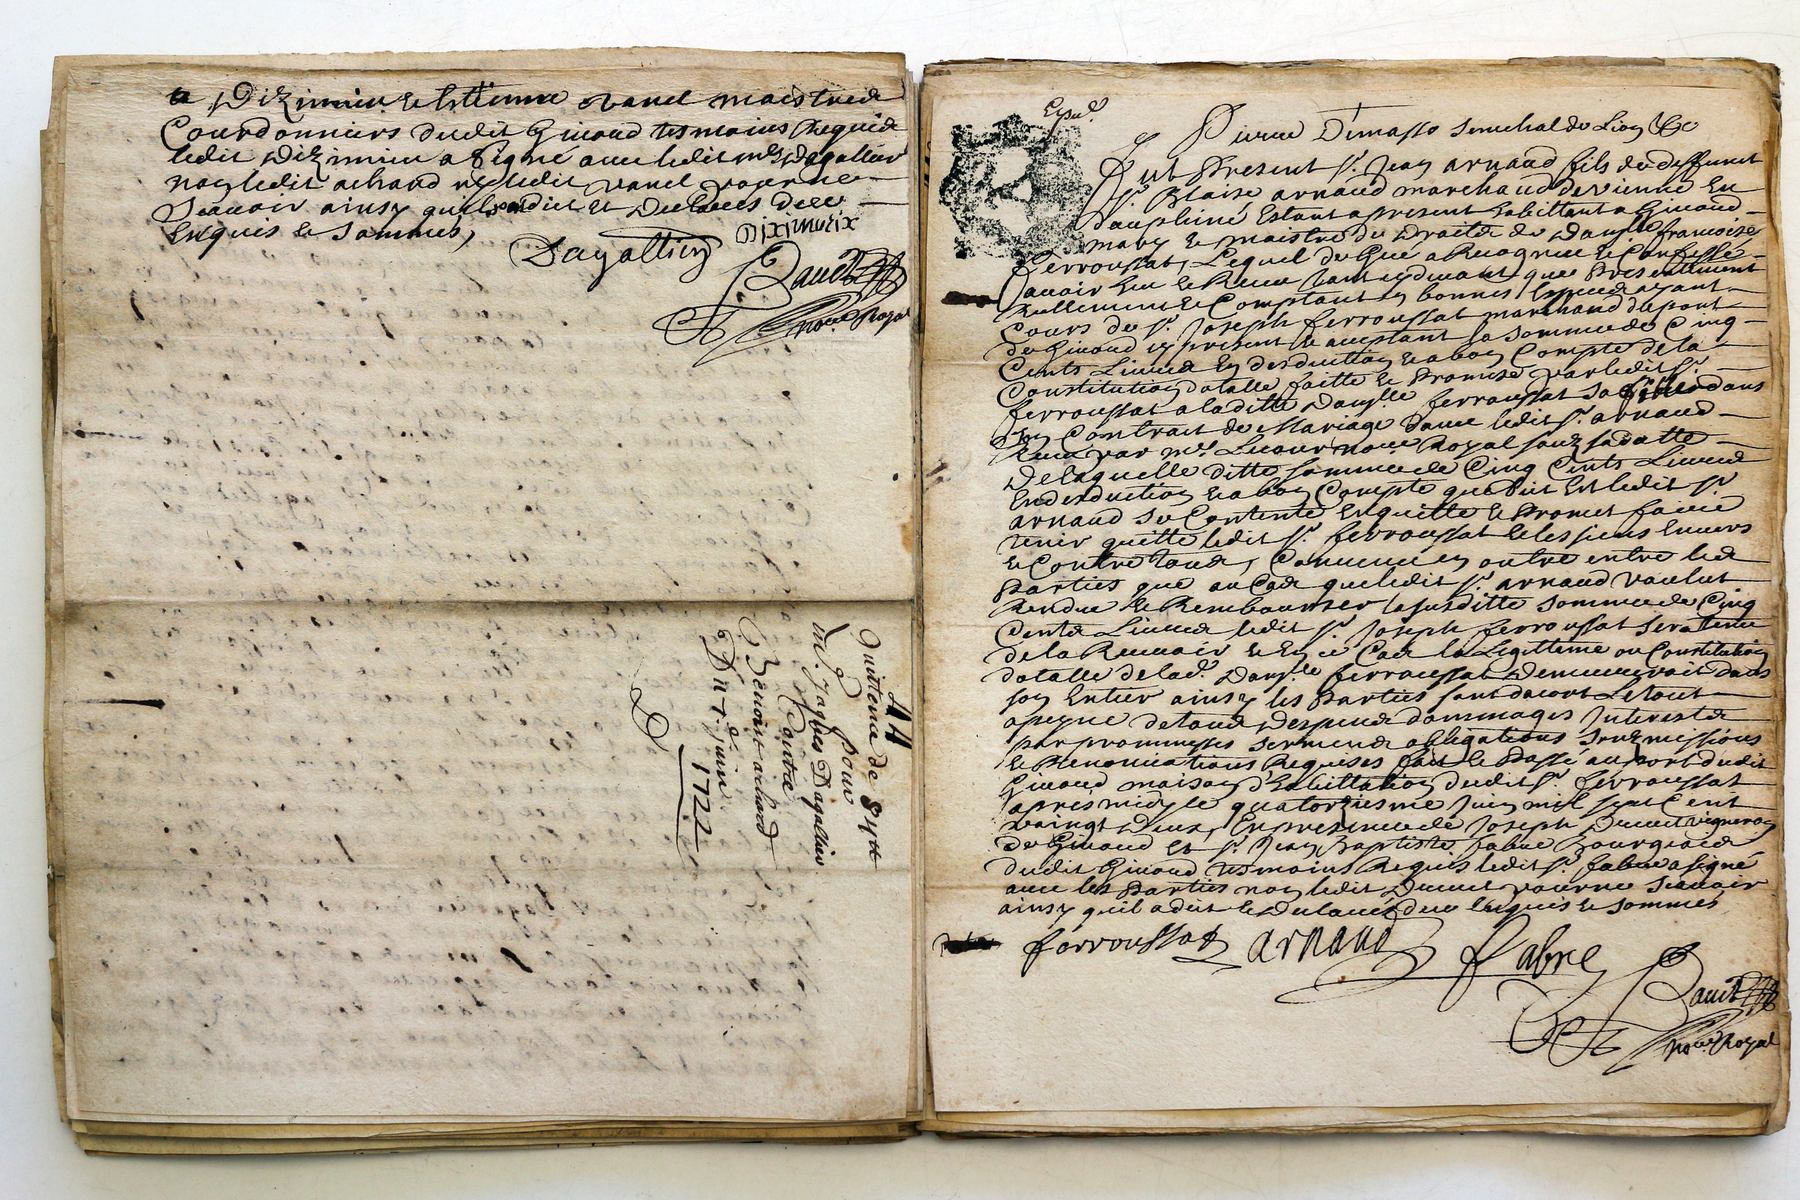 a Diximieu et Estienne Vanel maistres
Courdonniers dudit Givord tesmoins Requis
ledit Diximieu a signé avec ledit mr Dagallier
non ledit achard ny ledit vanel pour ne
Scavoir ainsy quils ont dit et Declarés de ce
Enquis et sommés,
Dagallier
Diximieix
noere Royal
44
Quittence de 84 ₶
pour
mr. Jaques Dagallier
Contre
Benoist achard
Du 7e juin
1722
Expié.
Pierre Dimasso senechal de Lion &c
fut Present Sr. Jean arnaud fils de deffunct
Sr. Blaise arnaud marchand de vienne En
dauphiné Estant a present habittant a Givord
mary et maistre des Droits de Damlle francoise
ferroussat, Lequel de Gré a Recognu et Confessé
avoir Eu et Receu tant cy devant que Presentement
Reellement et Comptant en bonnes Especes ayant
Cours de Sr. Joseph ferroussat marchand du port
de Givord icy present et acceptant la somme de Cinq
Cents Livres En desduction et a bon Compte de la
Constitution dotalle faitte et Promise par ledit Sr.
ferroussat a laditte Damlle. ferroussat sa fille dans
son Contrat de Mariage Davec ledit Sr. arnaud
Receu par me. noere Royal souz sa datte
De laquelle ditte somme de Cinq Cents Livres
En desduction et a bon Compte que dit Est ledit Sr.
arnaud se Contente En quitte et Promet faire
tenir quitte ledit Sr. ferroussat et les siens Envers
et Contre tous, Convenu en outre entre les
Parties que au Cas que ledit Sr. arnaud voulut
Rendre et Rembourser la susditte somme de Cinq
Cents Livres ledit Sr. Joseph ferroussat sera tenu
de la Recevoir et En ce Cas la Legittime ou Constitution
dotalle de lad. Damlle ferroussat Demeureroit dans
son Entier ainsy les Parties sont dacort Le tout
a peyne de tous Despens dommages Interests
par prommesses serments obligations souzmissions
et Renonciations Requises fait et Passé au port dudit
Givord maison d'habittation dudit Sr. ferroussat
apres midy le quatorziesme Juin mil sept Cent
vaingt Deux, En presence de Joseph vigneron
de Givord et Sr. Jean Baptiste fabre Bourgeois
dudit Givord tesmoins Requis ledit Sr. fabre a signé
avec les Parties non ledit pour ne Scavoir
ainsy quil a dit et Declaré de ce Enquis et sommés
ferroussat arnaud fabre
noere Royal